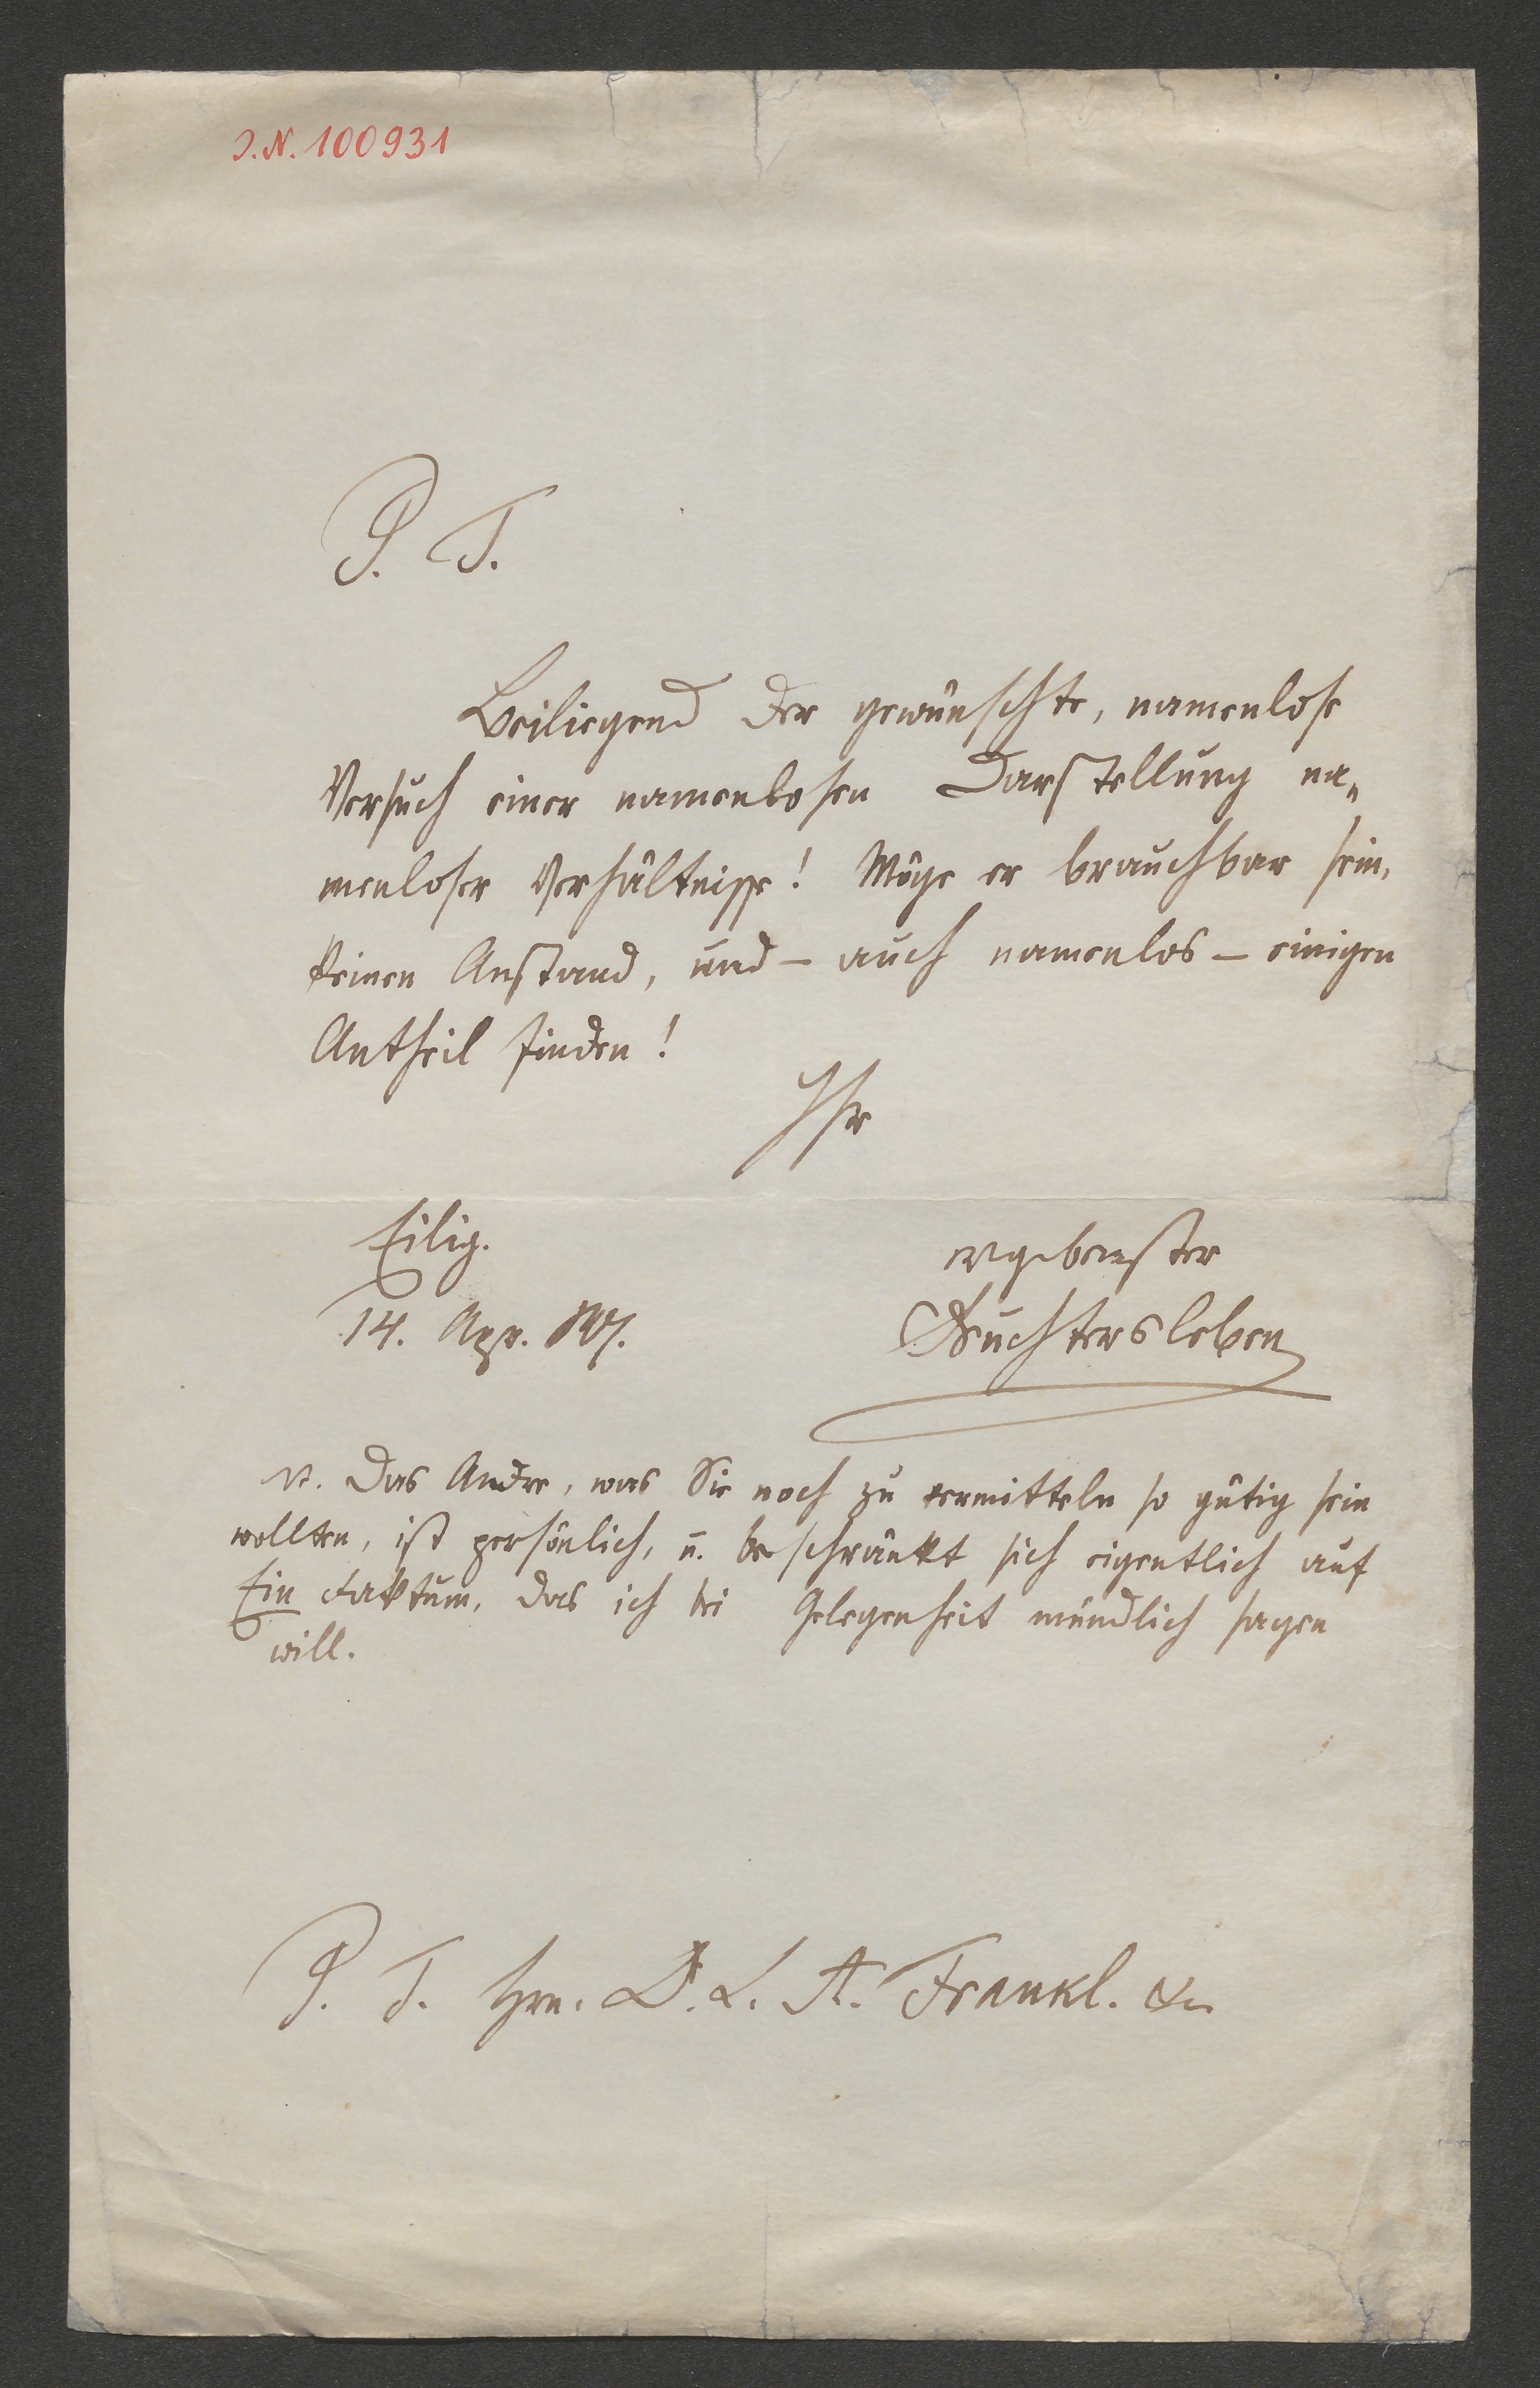 I.N. 100931
P. T.
Beiliegend der gewünschte, namenlose
Versuch einer namenlosen Darstellung na„
menloser Verhältnisse! Möge er brauchbar sein,
keinen Anstand, und – auch namenlos – einigen
Antheil finden!
Ihr
Eilig.
ergebenster
14. Apr.
Feuchtersleben
Das Andre, was Sie noch zu vermitteln so gütig sein
wollten, ist persönlich, u. beschränkt sich eigentlich auf
Ein Faktum, das ich bei Gelegenheit mündlich sagen
will.
P. T. Hrn. D. L. A. Frankl. &c